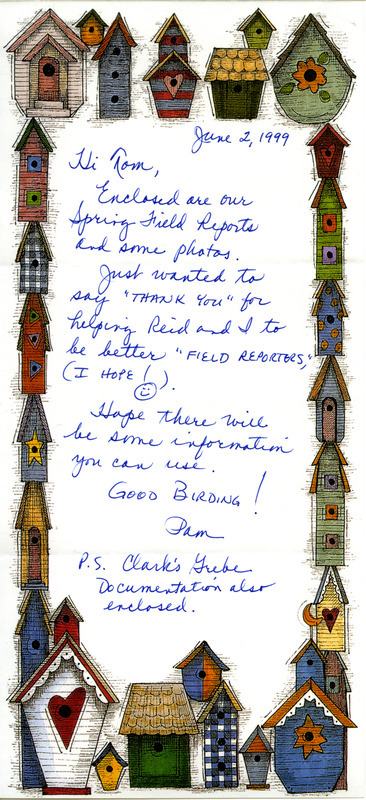 June 2, 1999
Hi Tom,
Enclosed are our
Spring Field Reports
and some photos.
Just wanted to
say "THANK YOU" for
helping Reid and I to
be better "FIELD REPORTERS,"
(I HOPE!).
Hope there will
be some information
you can use.
GOOD BIRDING!
Pam
P.S. Clark's Grebe
Documentation also
enclosed.